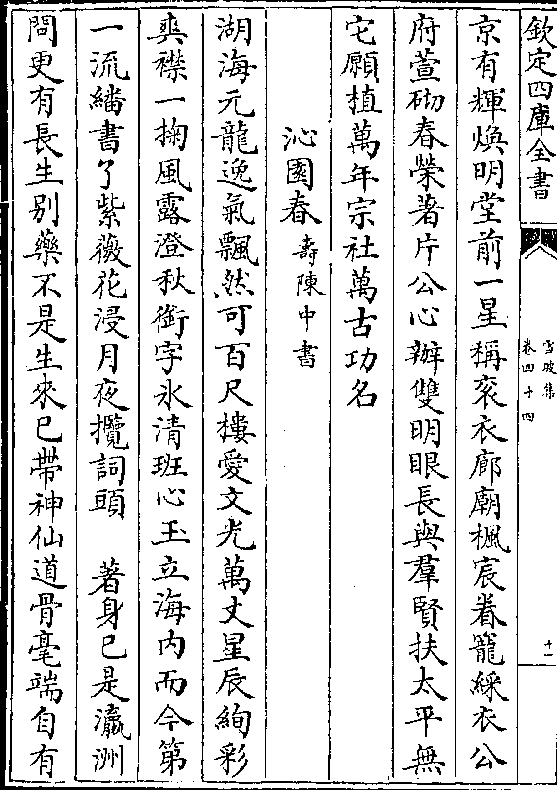 欽定四庫全書
雪坡集
卷四十四
十一
京有輝煥明堂前一星稱衮衣廊廟楓宸眷寵綵衣公
府萱砌春榮著片公心辦雙明眼長與羣賢扶太平無
它願植萬年宗社萬古功名
沁園春壽陳中書
湖海元龍逸氣飄然可百尺樓愛文光萬丈星辰絢彩
爽襟一掬風露澄秋銜字氷清班心玉立海内而今第
一流繙書了紫薇花浸月夜攬詞頭 著身已是瀛洲
問更有長生别藥不是生來已帶神仙道骨毫端自有